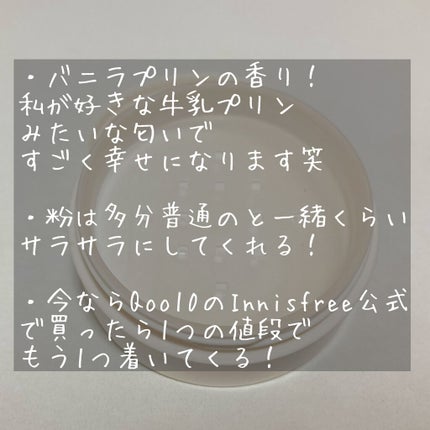 ・バニラプリンの香り！
私が好きな牛乳プリン
みたいな匂いで
すごく幸せになります笑
・粉は多分普通のと一緒くらい
サラサラにしてくれる！
・今ならQoo10のInnisfree公式
で買ったら1つの値段で
もう1つ着いてくる！